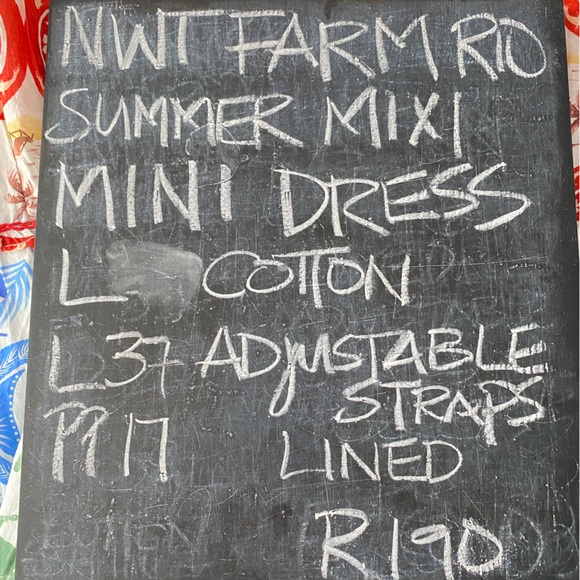 NWT FARM RIO
SUMMER MIXI
MINI DRESS
L COTTON
L37 ADJUSTABLE
STRAPS
PP 17 LINED
R190